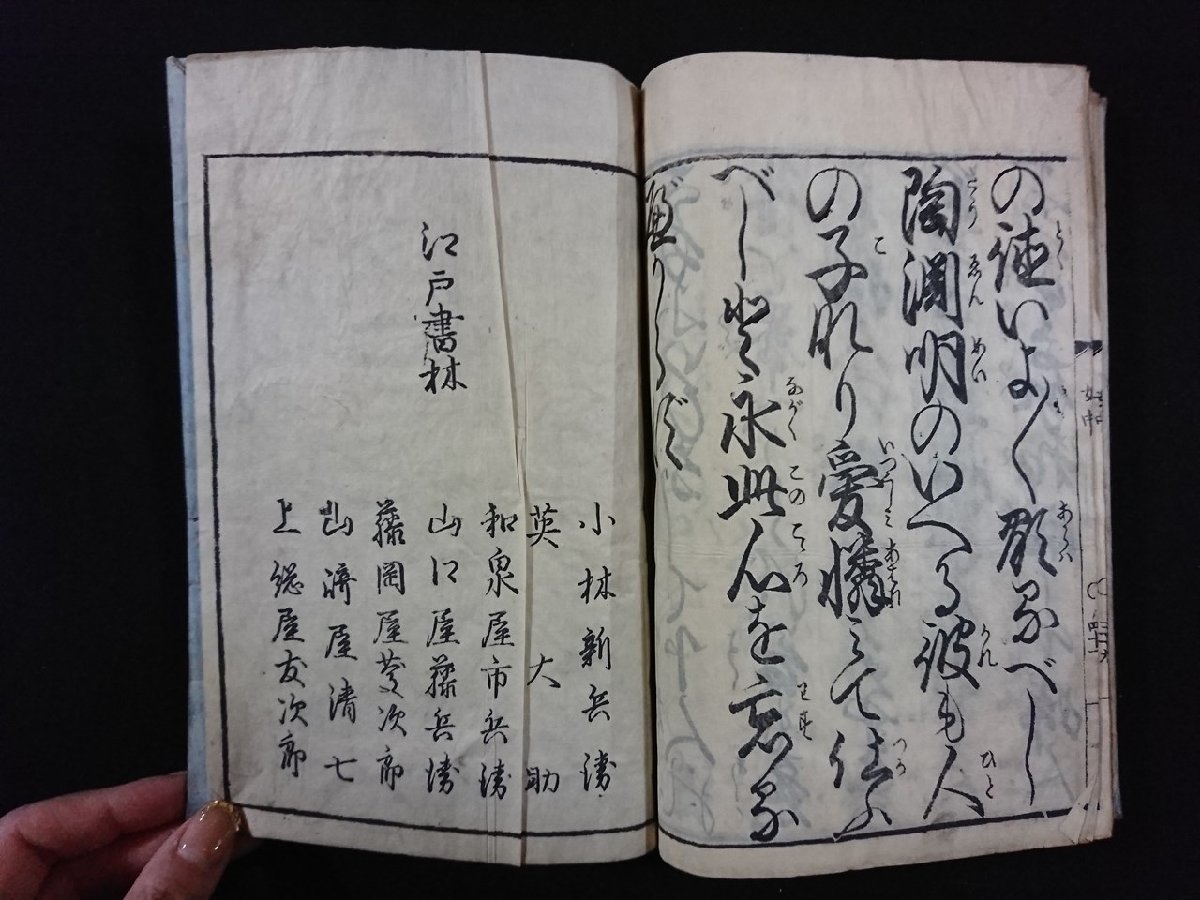 の徳いよ〱顕るべし
陶淵明のいへる彼も人
の子なり愛憐みて仕ふ
べしと永此心を忘る
べからず
江戸書林
小林新兵衛
英大助
和泉屋市兵衛
山口屋藤兵衛
藤岡屋慶次郎
山崎屋清七
上総屋友次郎